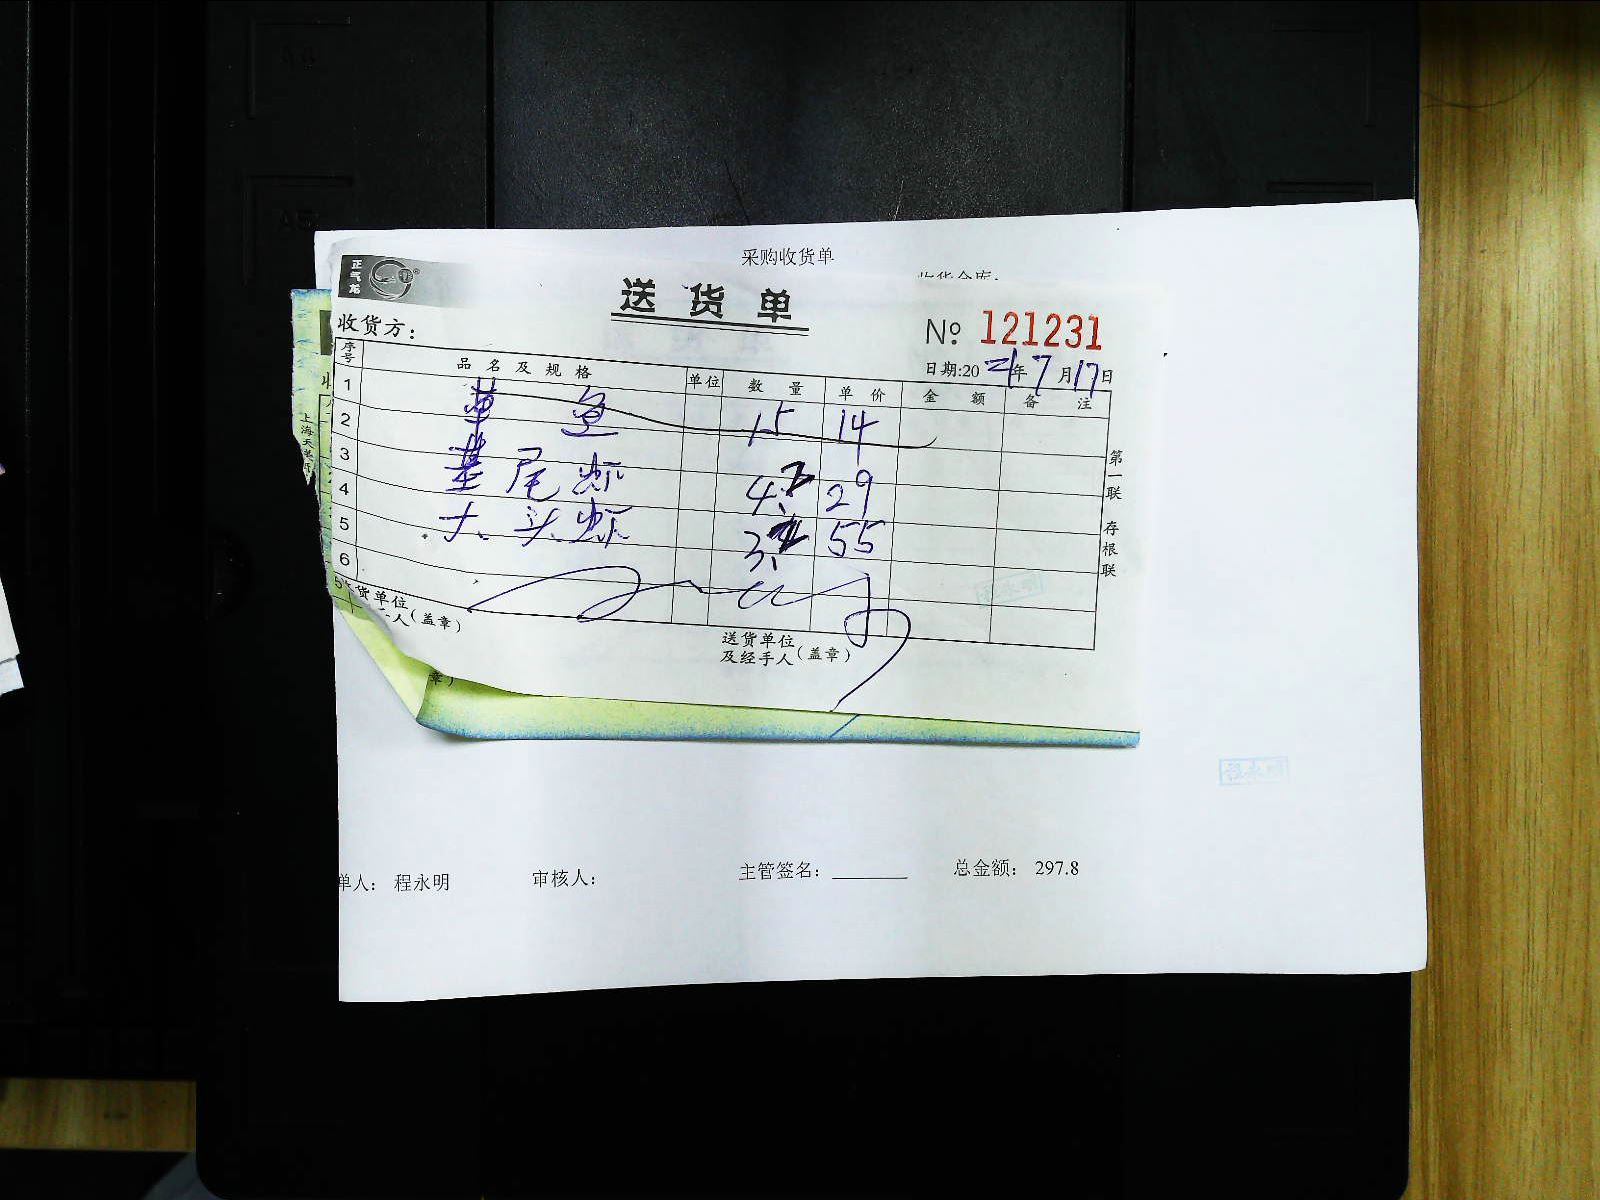 采购收货单
正气龙
送货单
收货方：
№ 121231
日期:2021年7月17日
序号 品名及规格 单位 数量 单价 金额 备注
1
2 草鱼 15 14
3
4 基尾虾 4. 29
5 大头虾 3. 55
6
货单位
人(盖章)
送货单位
及经手人(盖章)
第一联 存根联
章)
程永明
单人： 程永明 审核人： 主管签名： 总金额： 297.8